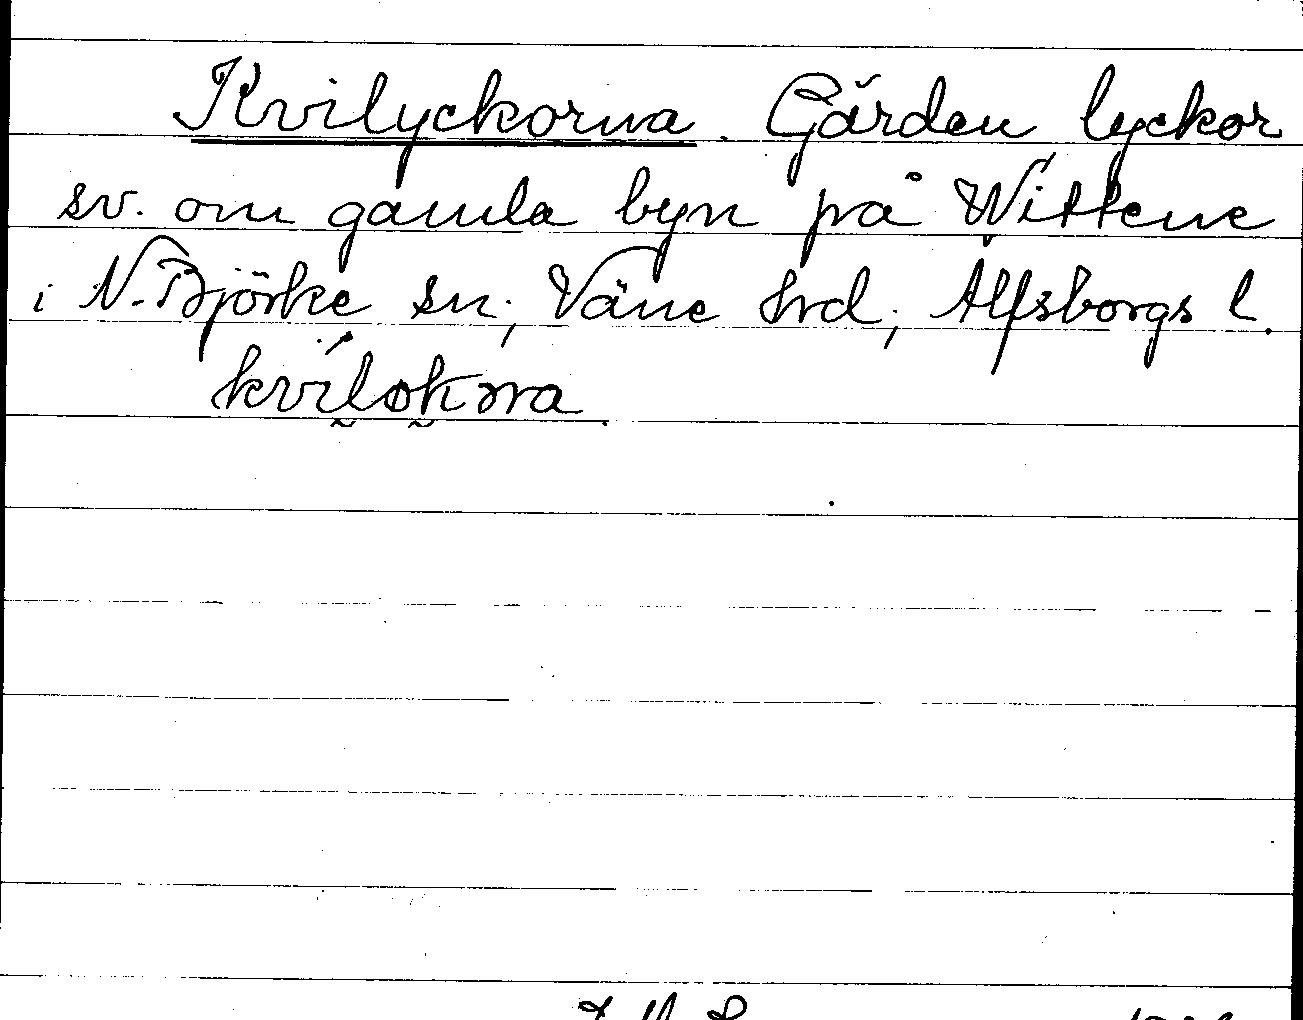 Kvilyckorna. Gärden lyckor
sv. om gamla byn på Wittene
i N. Björke sn, Väne hrd, Älfsborgs l.